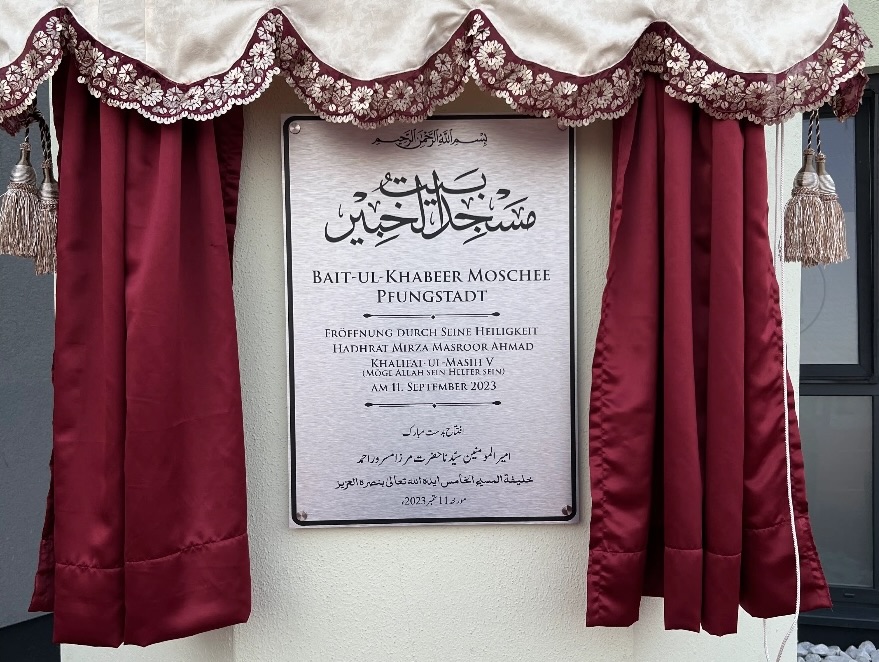 بسم الله الرحمن الرحيم
مسجد بيت الخبير
BAIT-UL-KHABEER MOSCHEE
PFUNGSTADT
ERÖFFNUNG DURCH SEINE HEILIGKEIT
HADHRAT MIRZA MASROOR AHMAD
KHALIFAT-UL-MASIH V
(MÖGE ALLAH SEIN HELFER SEIN)
AM 11. SEPTEMBER 2023
افتتاح بدست مبارک
امیر المومنین سیّدنا حضرت مرزا مسرور احمد
خلیفة المسیح الخامس ایدہ اللہ تعالیٰ بنصرہ العزیز
مورخہ 11 ستمبر 2023ء